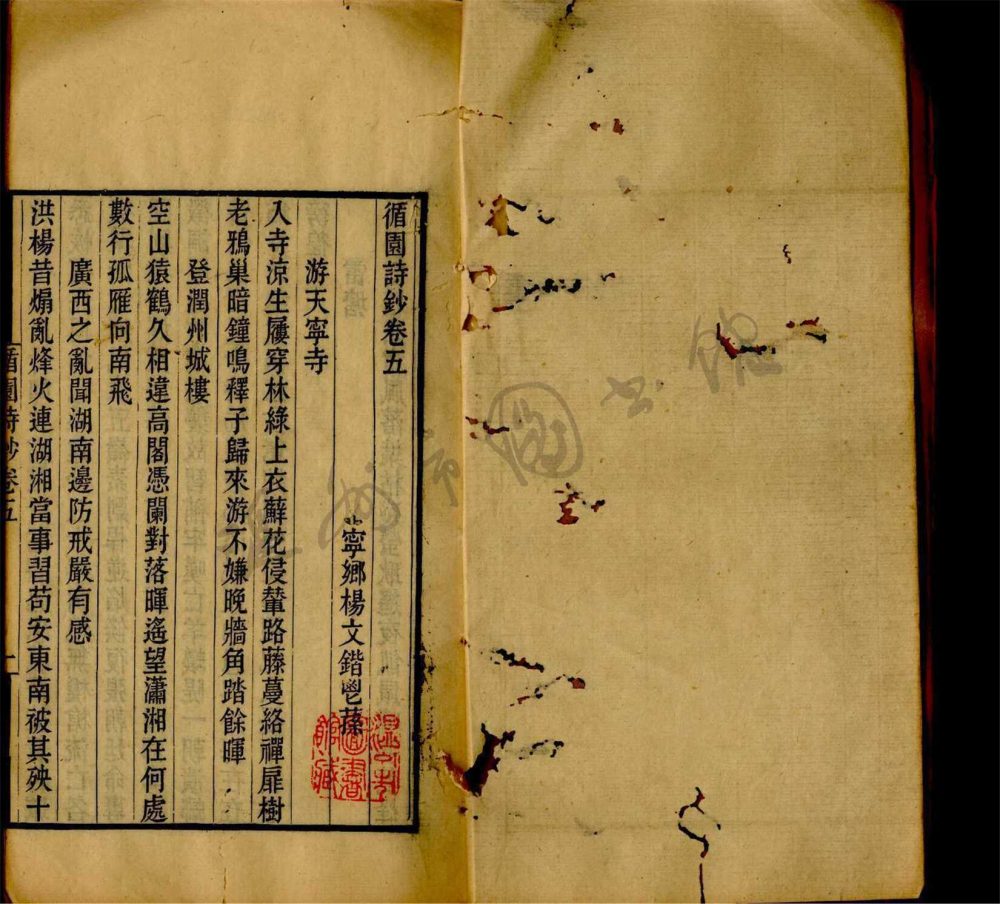 循園詩鈔卷五
寧鄉楊文鍇鬯蓀
游天寧寺
入寺涼生屨穿林綠上衣蘚花侵輦路藤蔓絡禪扉樹
老鴉巢暗鐘鳴釋子歸來游不嫌晚牆角踏餘暉
登潤州城樓
空山猿鶴久相違高閣憑闌對落暉遙望瀟湘在何處
數行孤雁向南飛
廣西之亂聞湖南邊防戒嚴有感
洪楊昔煽亂烽火連湖湘當事習苟安東南被其殃十
循園詩鈔卷五
一
溫州市圖書館藏
州市圖書館